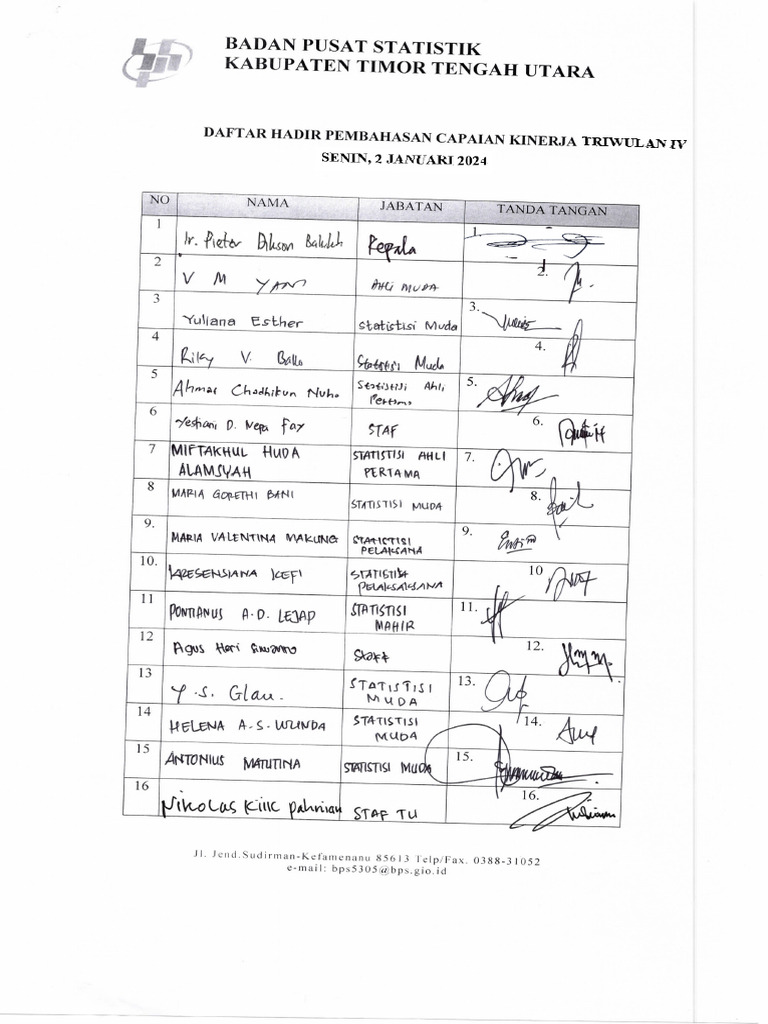 BADAN PUSAT STATISTIK
KABUPATEN TIMOR TENGAH UTARA
DAFTAR HADIR PEMBAHASAN CAPAIAN KINERJA TRIWULAN IV
SENIN, 2 JANUARI 2024
NO NAMA JABATAN TANDA TANGAN
1 Ir. Pieter Dikson Kepala 1.
2 V M AHLI MUDA 2.
3 Yuliana Esther Statistisi Muda 3.
4 Riky V. Statistisi Muda 4.
5 Ahmar Chadhikun Nuho Statistisi Ahli Pertama 5.
6 Yestiani D. Nepa Fay STAF 6.
7 MIFTAKHUL HUDA ALAMSYAH STATISTISI AHLI PERTAMA 7.
8 MARIA GORETHI BANI STATISTISI MUDA 8.
9. MARIA VALENTINA MAKUNG STATISTISI PELAKSANA 9.
10. KRESENSIANA KEFI 10
11 PONTIANUS A.D. LEJAP STATISTISI MAHIR 11.
12 Agus Heri Staff 12.
13 Y.S. Glau. STATISTISI MUDA 13.
14 HELENA A.S. WUNDA STATISTISI MUDA 14.
15 ANTONIUS MATUTINA STATISTISI MUDA 15.
16 NIKOLAS STAF TU 16.
Jl. Jend.Sudirman-Kefamenanu 85613 Telp/Fax. 0388-31052
e-mail: bps5305@bps.gio.id